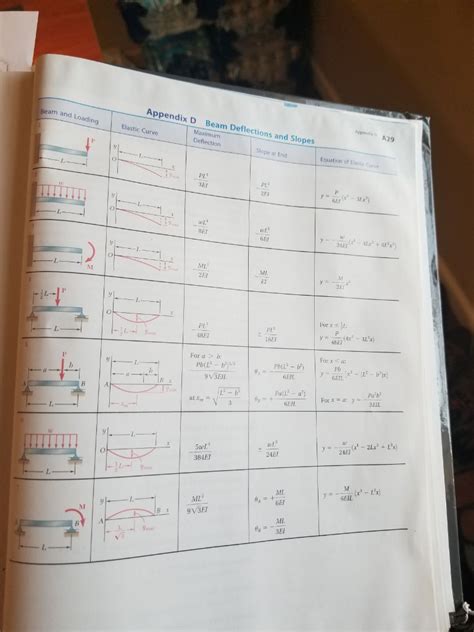 Appendix D Beam Deflections and Slopes
Appendix D A29
Beam and Loading
Elastic Curve
Maximum Deflection
Slope at End
Equation of Elastic Curve
P
L
y
O
L
x
y max
PL³/3EI
PL²/2EI
y = P/6EI (x³ − 3Lx²)
w
L
y
O
L
x
y max
wL⁴/8EI
wL³/6EI
M
L
y
O
L
x
y max
ML²/2EI
ML/EI
y = − M/2EI x²
½L
P
L
y
O
L
x
½L
y max
PL³/48EI
± PL²/16EI
For x ≤ ½L:
y = P/48EI (4x³ − 3L²x)
P
a
b
A
B
L
y
L
a
b
A
B
x
For a > b:
Pb(L² − b²)^3/2 / 9√3EIL
at xm = √((L² − b²)/3)
For x < a:
y = Pb/6EIL [x³ − (L² − b²)x]
For x = a: y = − Pa²b²/3EIL
w
L
y
O
L
x
½L
y max
5wL⁴/384EI
± wL³/24EI
y = − w/24EI (x⁴ − 2Lx³ + L³x)
M
A
B
L
y
L
A
B
x
L/√3
y max
ML²/9√3EI
θA = + ML/6EI
θB = − ML/3EI
y = − M/6EIL (x³ − L²x)